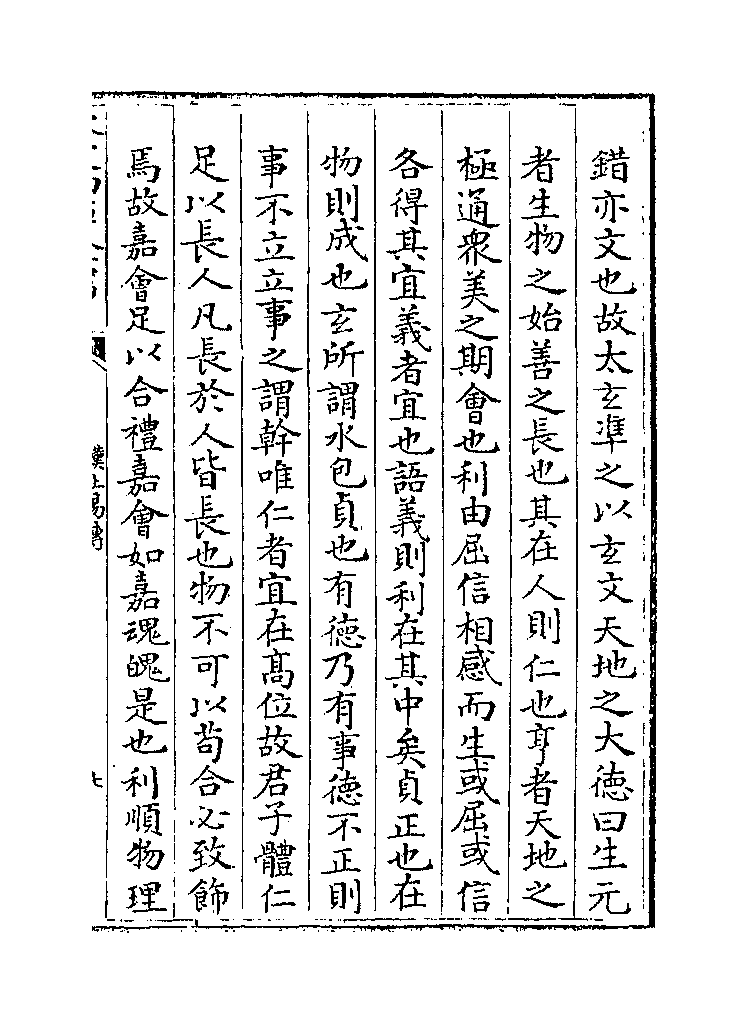 錯亦文也故太玄準之以玄文天地之大徳曰生元
者生物之始善之長也其在人則仁也亨者天地之
極通衆美之期會也利由屈信相感而生或屈或信
各得其宜義者宜也語義則利在其中矣貞正也在
物則成也玄所謂水包貞也有徳乃有事徳不正則
事不立立事之謂幹唯仁者宜在髙位故君子體仁
足以長人凡長於人皆長也物不可以茍合必致飾
焉故嘉會足以合禮嘉會如嘉魂魄是也利順物理
漢上易傳
七